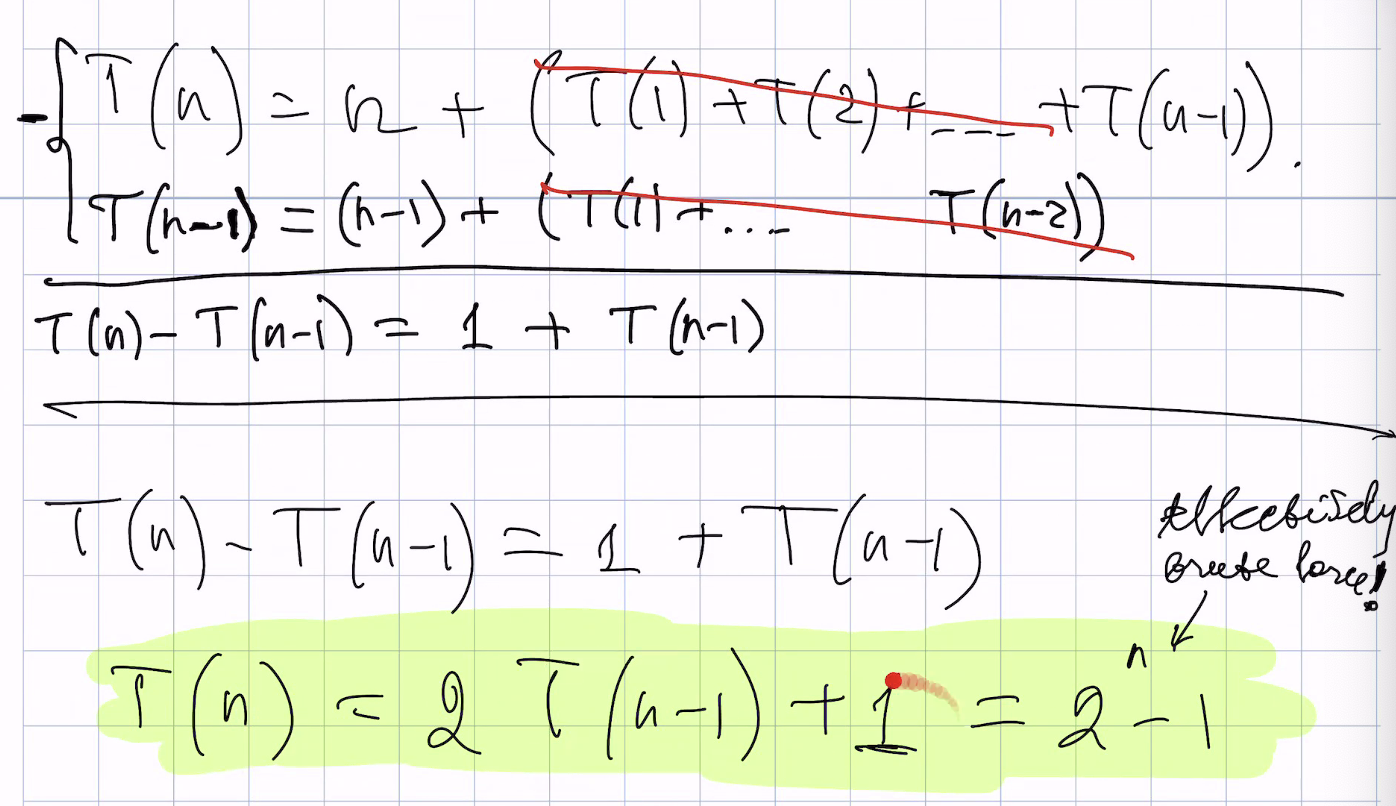 T(n) = n + (T(1) + T(2) + --- + T(n-1)).
T(n-1) = (n-1) + (T(1) + .... T(n-2))
T(n) - T(n-1) = 1 + T(n-1)
T(n) - T(n-1) = 1 + T(n-1)
effectively
brute force!
T(n) = 2 T(n-1) + 1 = 2^n - 1